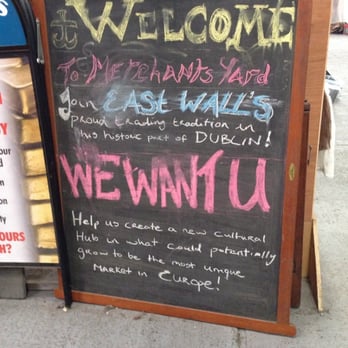 WELCOME
To MERCHANTS YARD
Join EAST WALL'S
proud trading tradition in
this historic part of DUBLIN!
WE WANT U
Help us create a new cultural
Hub in what could potentially
grow to be the most unique
MARKET in EUROPE!
OURS
H?